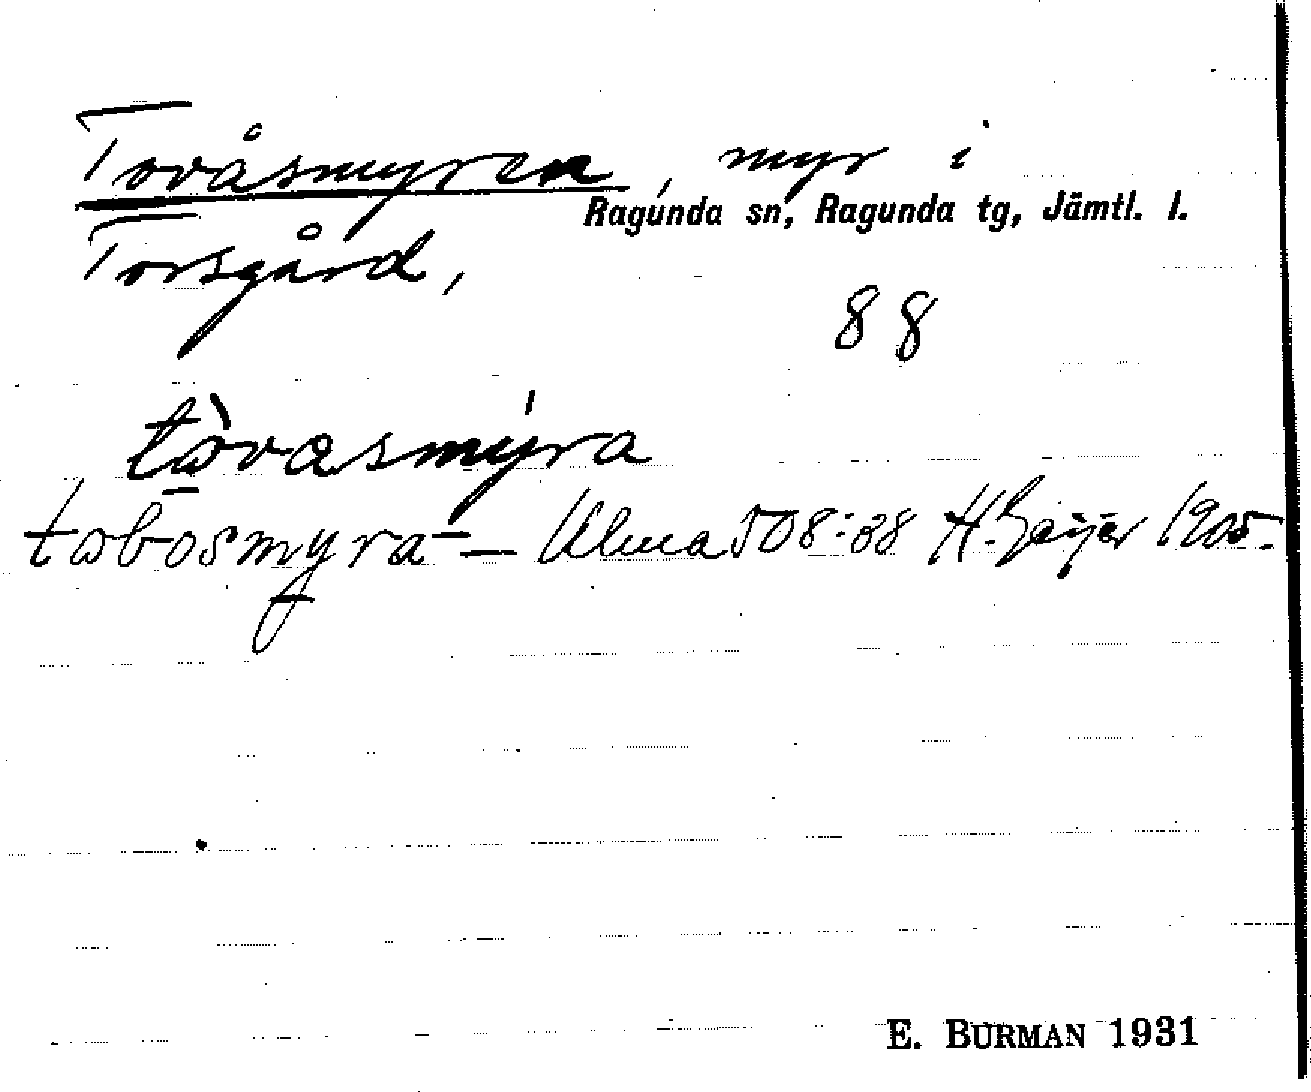 Tovåsmyren, myr i
Ragunda sn, Ragunda tg, Jämtl. l.
Torsgård,
88
tòvasmýra
tobosmyra — Ulma 508:88 H. Geijer 1905.
E. BURMAN 1931